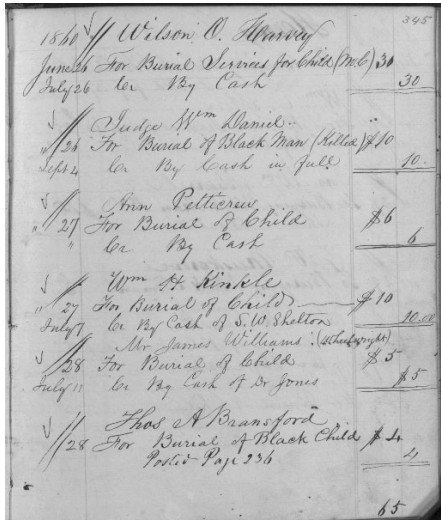 345
1860 Wilson O. Harvey
June 26 For Burial Services for Child (M.C) 30
July 26 Cr By Cash 30
Judge Wm Daniel
" 26 For Burial of Black Man (Killed) $10
Sept 4 Cr By Cash in full 10.
Ann Petticrew
" 27 For Burial of Child $6
" Cr By Cash 6
Wm H. Kinkle
" 27 For Burial of Child $10
July 7 Cr By Cash of S.W. Shelton 10.00
Mr James Williams. (Wheelwright)
" 28 For Burial of Child $5
July 11 Cr By Cash of Dr Jones $5
Thos A Bransford
" 28 For Burial of Black Child $4
Posted Page 236 4
65